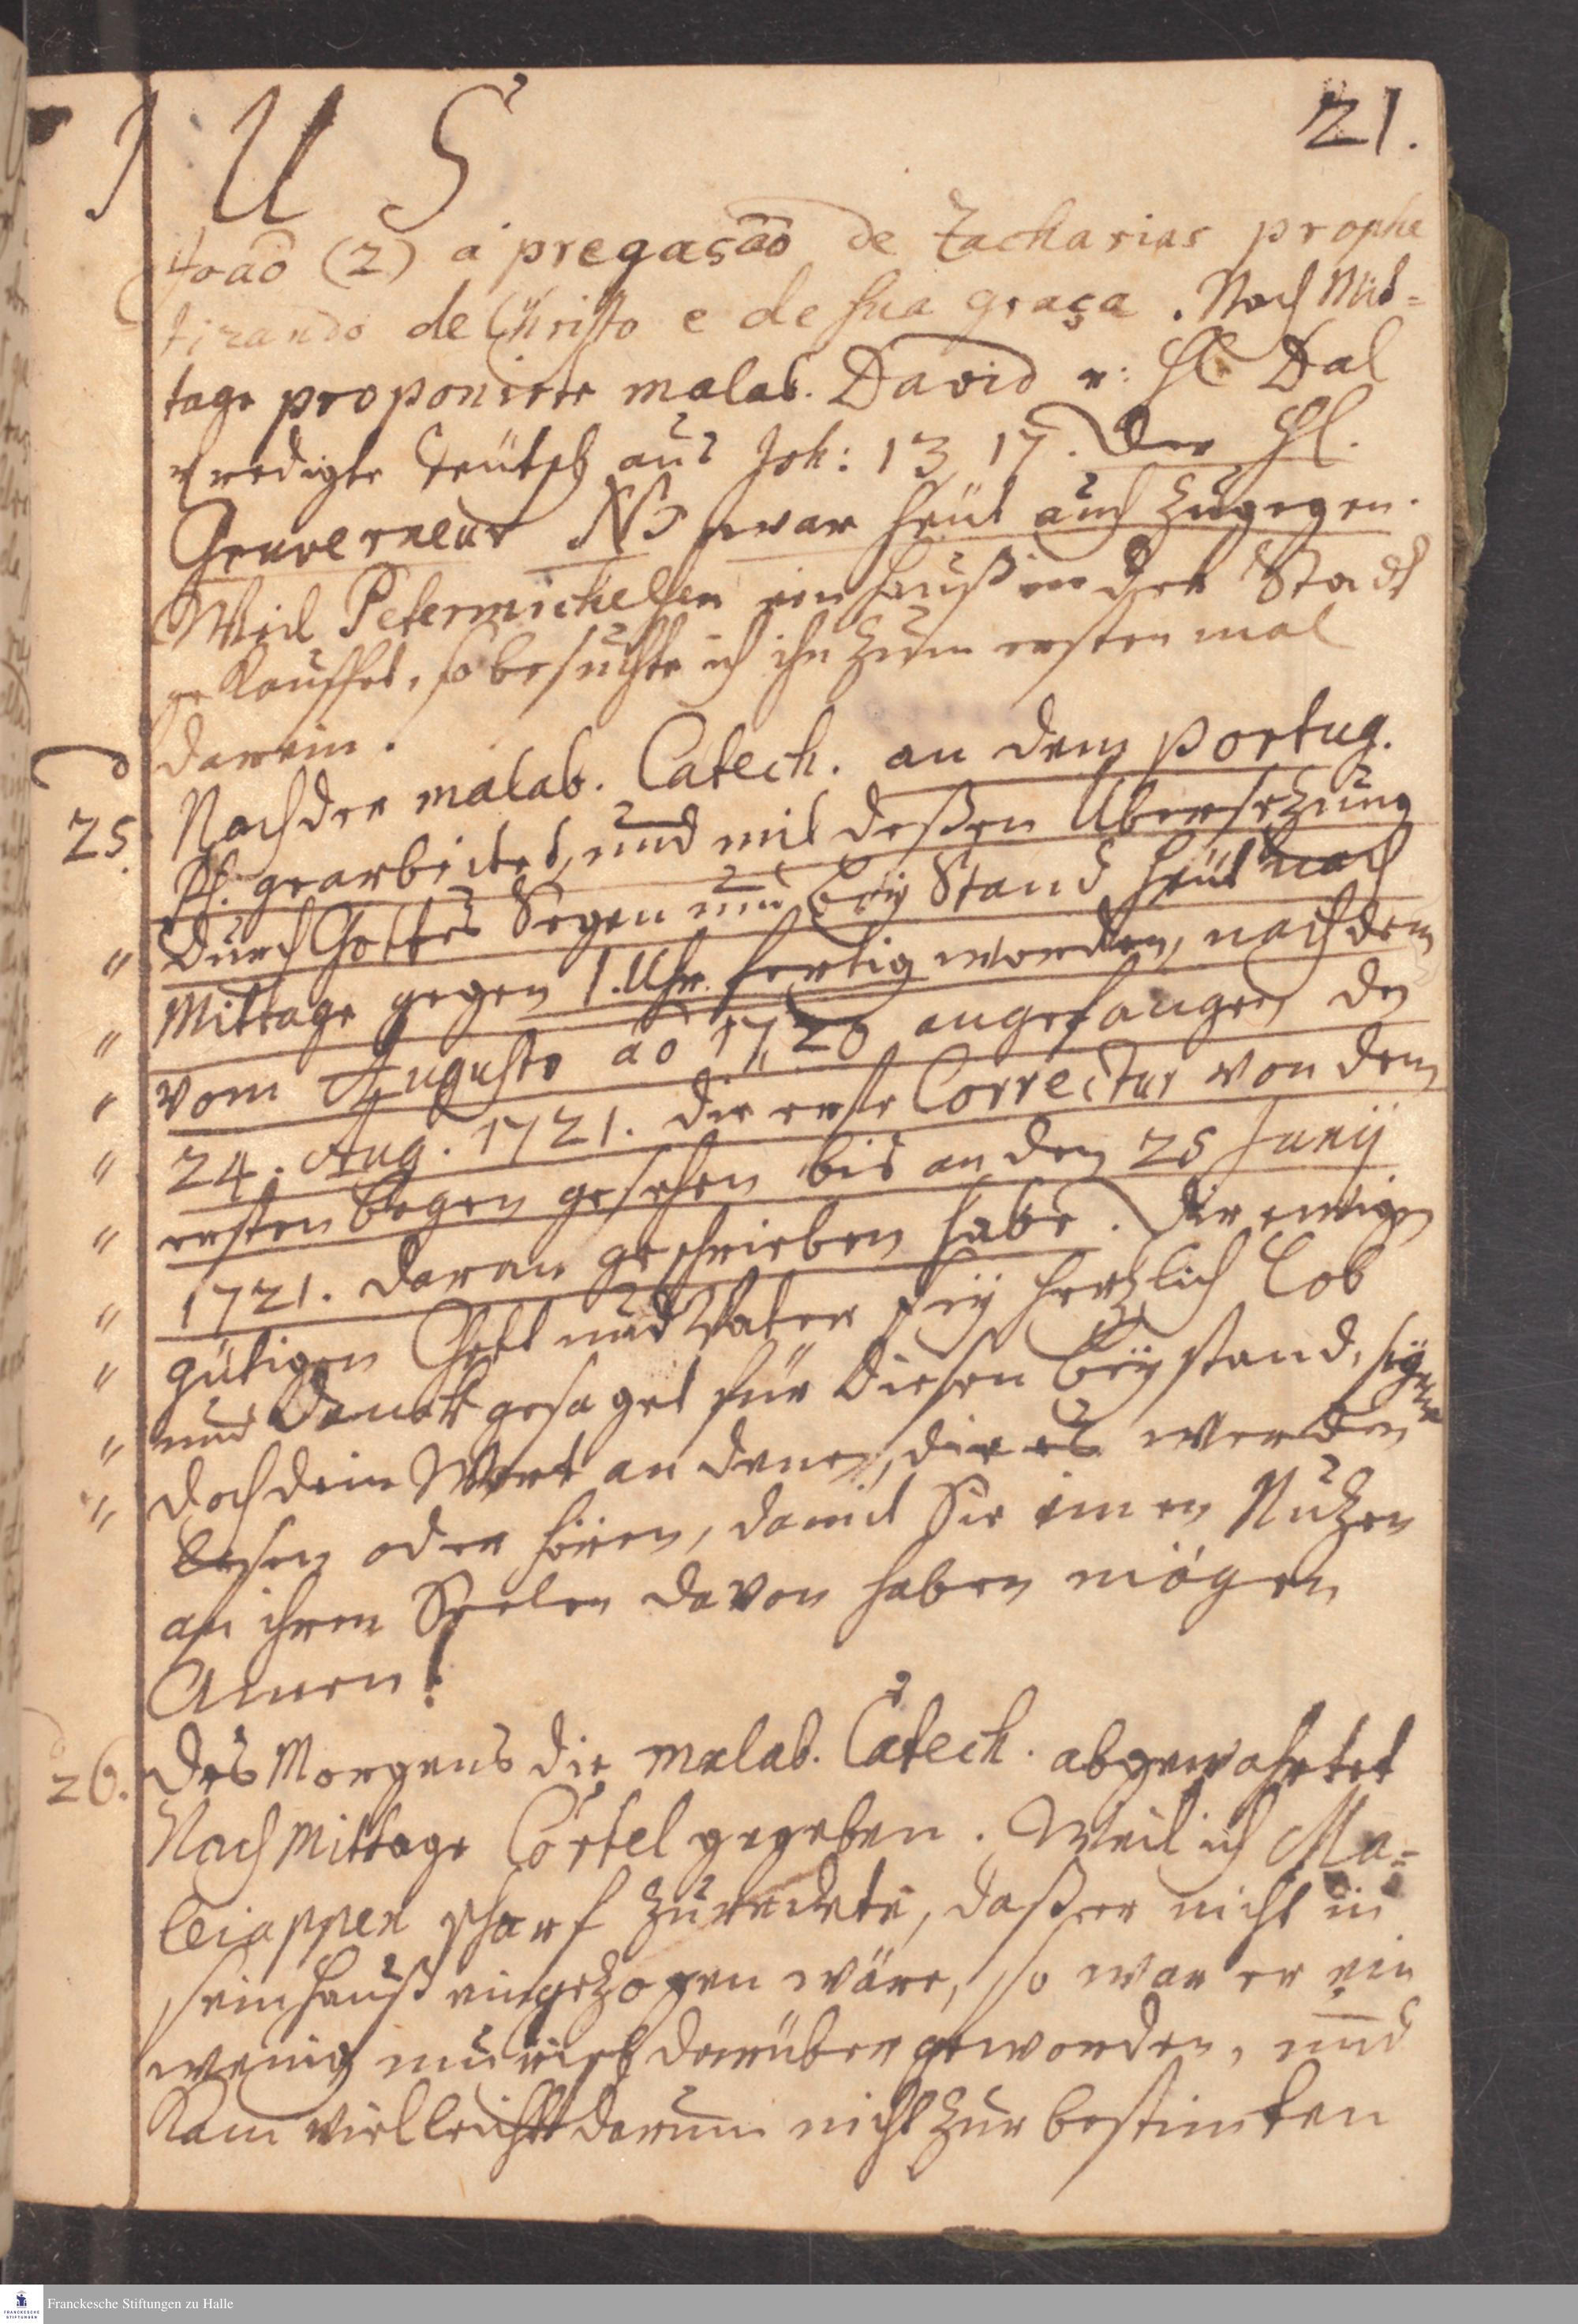 J U S 21.
João (2) a pregação de Zacharias prophe
tizando de Christo e de sua graça. Nach Mit=
tage proponirte malab. David u: H. Dal
predigte teütsch aus Joh: 13, 17. Der H.
Gouverneur NB war heüt auch zugegen.
Weil Petermichelsen ein Hauß in der Stadt
gekauffet, so besuchte ich ihn zum ersten mal
darein.
25. Nach der malab. Catech. an dem portug.
Ps. gearbeitet, und mit deßen Übersetzung
" durch Gottes Segen und Beystand heüt nach
" Mittage gegen 1. Uhr fertig worden, nachdem
" vom Augusto ao 1720 angefangen den
" 24. Aug. 1721. die erste Correctur von dem
" ersten bogen gesehen bis an den 25 Junij
" 1721. daran geschrieben habe. Dir ewigen
" gütigen Gott und Vater sey hertzlich Lob
" und Danck gesaget für diesen Beystand, segene
" doch dein Wort an denen, die es werden
lesen oder hören, damit Sie einen Nutzen
an ihren Seelen davon haben mögen
Amen!
26. Des Morgens die malab. Catech. abgewartet
Nach Mittage Cortel gegeben. Weil ich Ma=
leiappen scharf zuredete, daß er nicht in
sein Hauß eingezogen wäre, so war er ein
wenig mürrisch darüber geworden, und
kam vielleicht darum nicht zur bestimten
Franckesche Stiftungen zu Halle